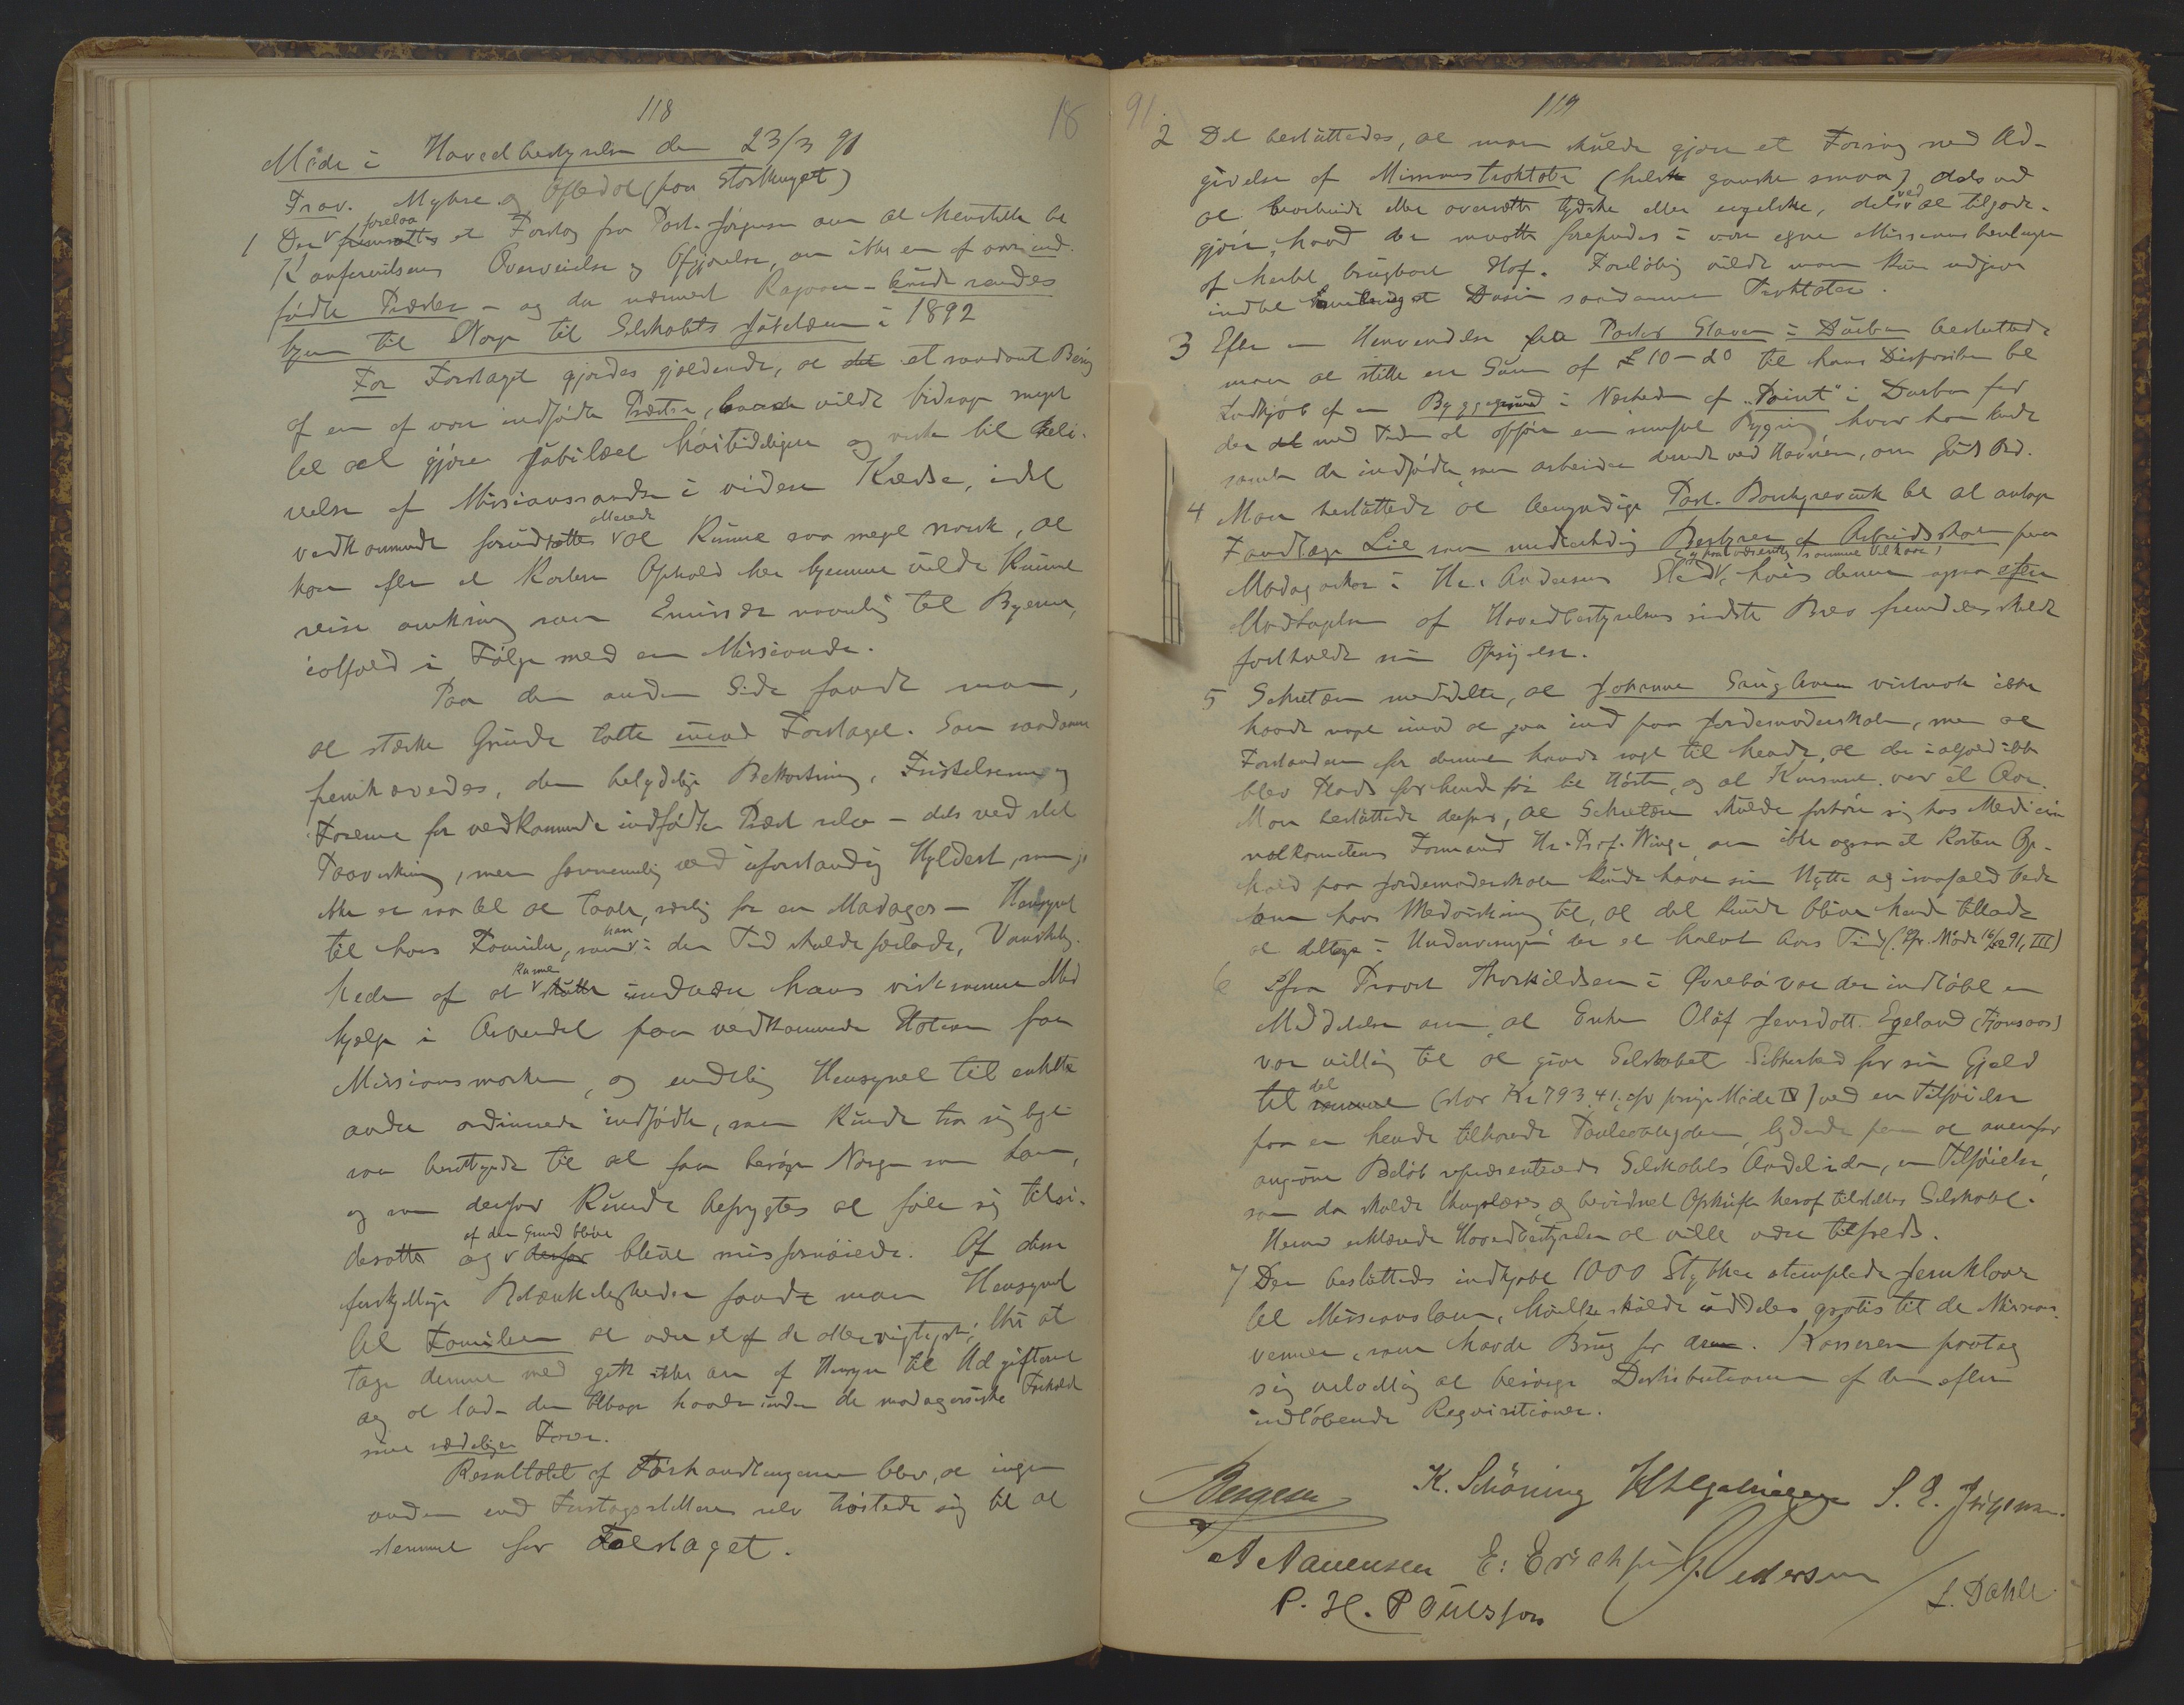 118
18
Møde i Hovedbestyrelsen den 23/3 91
Frav. Myhre og Oftedal (paa Storthinget)
1 Der forelaa fremsattes et Forslag fra Past. Jørgensen om at henstille til
Konferentsens Overveielse og Afgjørelse, om ikke en af vore ind-
fødte Præster – og da nærmest Rajaona – burde sendes
hjem til Norge til Selskabets Jubilæum i 1892
For Forslaget gjordes gjældende, at det et saadant Besøg
af en af vore indfødte Præster, baade vilde bidrage meget
til at gjøre Jubilæet høitideligere og virke til Opli-
velse af Missionssandsen i videre Kredse, idet
vedkommende forudsattes allerede at kunne saa meget norsk, at
han efter et kortere Ophold her hjemme vilde kunne
reise omkring som Emissær navnlig til Byerne,
ialfald i Følge med en Missionær.
Paa den anden Side fandt man,
at stærke Grunde talte imod Forslaget. Som saadanne
fremhævedes, den betydelige Bekostning, Fristelserne og
Farerne for vedkommende indfødte Præst selv – dels ved slet
Paavirkning, men fornemmelig ved uforstandig Hyldest, som jo
ikke er saa let at taale, særlig for en Madagas – Hensynet
til hans Familie, som han i den Tid skulde forlade, Vanskelig-
heden af at kunne skulle undvære hans virksomme Med
hjælp i Arbeidet paa vedkommende Station paa
Missionsmarken, og endelig Hensynet til enkelte
andre ordinerede indfødte, som kunde tro sig lige
saa berettigede til at faa besøge Norge som han,
og som derfor kunde befrygtes at føle sig tilsi-
desatte og af den Grund blive derfor blive misfornøiede. Af disse
forskjellige Betænkeligheder fandt man Hensynet
til Familien at være et af de allervigtigste; thi at
tage denne med gik ikke an af Hensyn til Udgifterne
og at lade den tilbage havde under de madagassiske Forhold
sine sædelige Farer.
Resultatet af Forhandlingerne blev, at ingen
anden end Forslagsstilleren selv trøstede sig til at
stemme for Forslaget.
91.
119
2 Det besluttedes, at man skulde gjøre et Forsøg med Ud-
givelse af Missionstraktater (helst ganske smaa) dels ved
at bearbeide eller oversætte tydske eller engelske, dels ved at tilgode-
gjøre, hvad der maatte forefindes i vore egne Missionsberetninger
af hertil brugbart Stof. Foreløbig vilde man kun udgive
indtil et Dusin saadanne Traktater.
3 Efter en Henvendelse fra Pastor Stavem i Durban besluttede
man at stille en Sum af £ 10–20 til hans Disposition til
Indkjøb af en Byggegrund i Nærheden af „Point" i Durban for
der det med Tiden at opføre en simpel Bygning hvor han kunde
samle de indfødte, som arbeider dernede ved Havnen, om Guds Ord.
4 Man besluttede at bemyndige Past. Borchgrevink til at antage
Tandlæge Lie som midlertidig Bestyrer af Arbeidsskolen paa
Madagaskar i Hr. Andersens Sted, og paa væsentlig samme Vilkaar, hvis denne ogsaa efter
Modtagelsen af Hovedbestyrelsens sidste Brev fremdeles skulde
fastholde sin Opsigelse.
5 Sekretæren meddelte, at Johanne vistnok ikke
havde noget imod at gaa ind paa Jordemoderskolen, men at
Forstanderen for denne havde sagt til hende, at der ialfald ikke
blev Plads for hende før til Høsten, og at Kursuset var et Aar.
Man besluttede derfor, at Sekretæren skulde forhøre sig hos Medicin
alkomiteens Formand Hr. Prof. Winge, om ikke ogsaa et kortere Op-
hold paa Jordemoderskolen kunde have sin Nytte og isaafald bede
om hans Medvirkning til, at det kunde blive hende tilladt
at deltage i Undervisningen der et halvt Aars Tid (Cfr. Møde 16/2 91, III)
6 Fra Provst Thorkildsen i Øvrebø var der indløbet en
Meddelelse om, at Enken Oløf Jensdatt. Egeland
var villig til at give Selskabet Sikkerhed for sin Gjæld
til det samme (stor Kr 793.41; cfr forrige Møde IV) ved en Tilføielse
paa en hende tilhørende Panteobligation, lydende paa at ovenfor
angivne Beløb repræsenterede Selskabets Andel i den, en Tilføielse,
som da skulde thinglæses, og bevidnet Afskrift heraf tilstilles Selskabet.
Hermed erklærede Hovedbestyrelsen at ville være tilfreds.
7 Der besluttedes indkjøbt 1000 Stykker stemplede
til Missionslam, hvilke skulde uddeles gratis til de Missions-
venner, som havde Brug for dem. Kassereren paatog
sig velvillig at besørge Distributionen af dem efter
indløbende Reqvisitioner.
K. Schöning S. E. Jörgensen.
L. Dahle